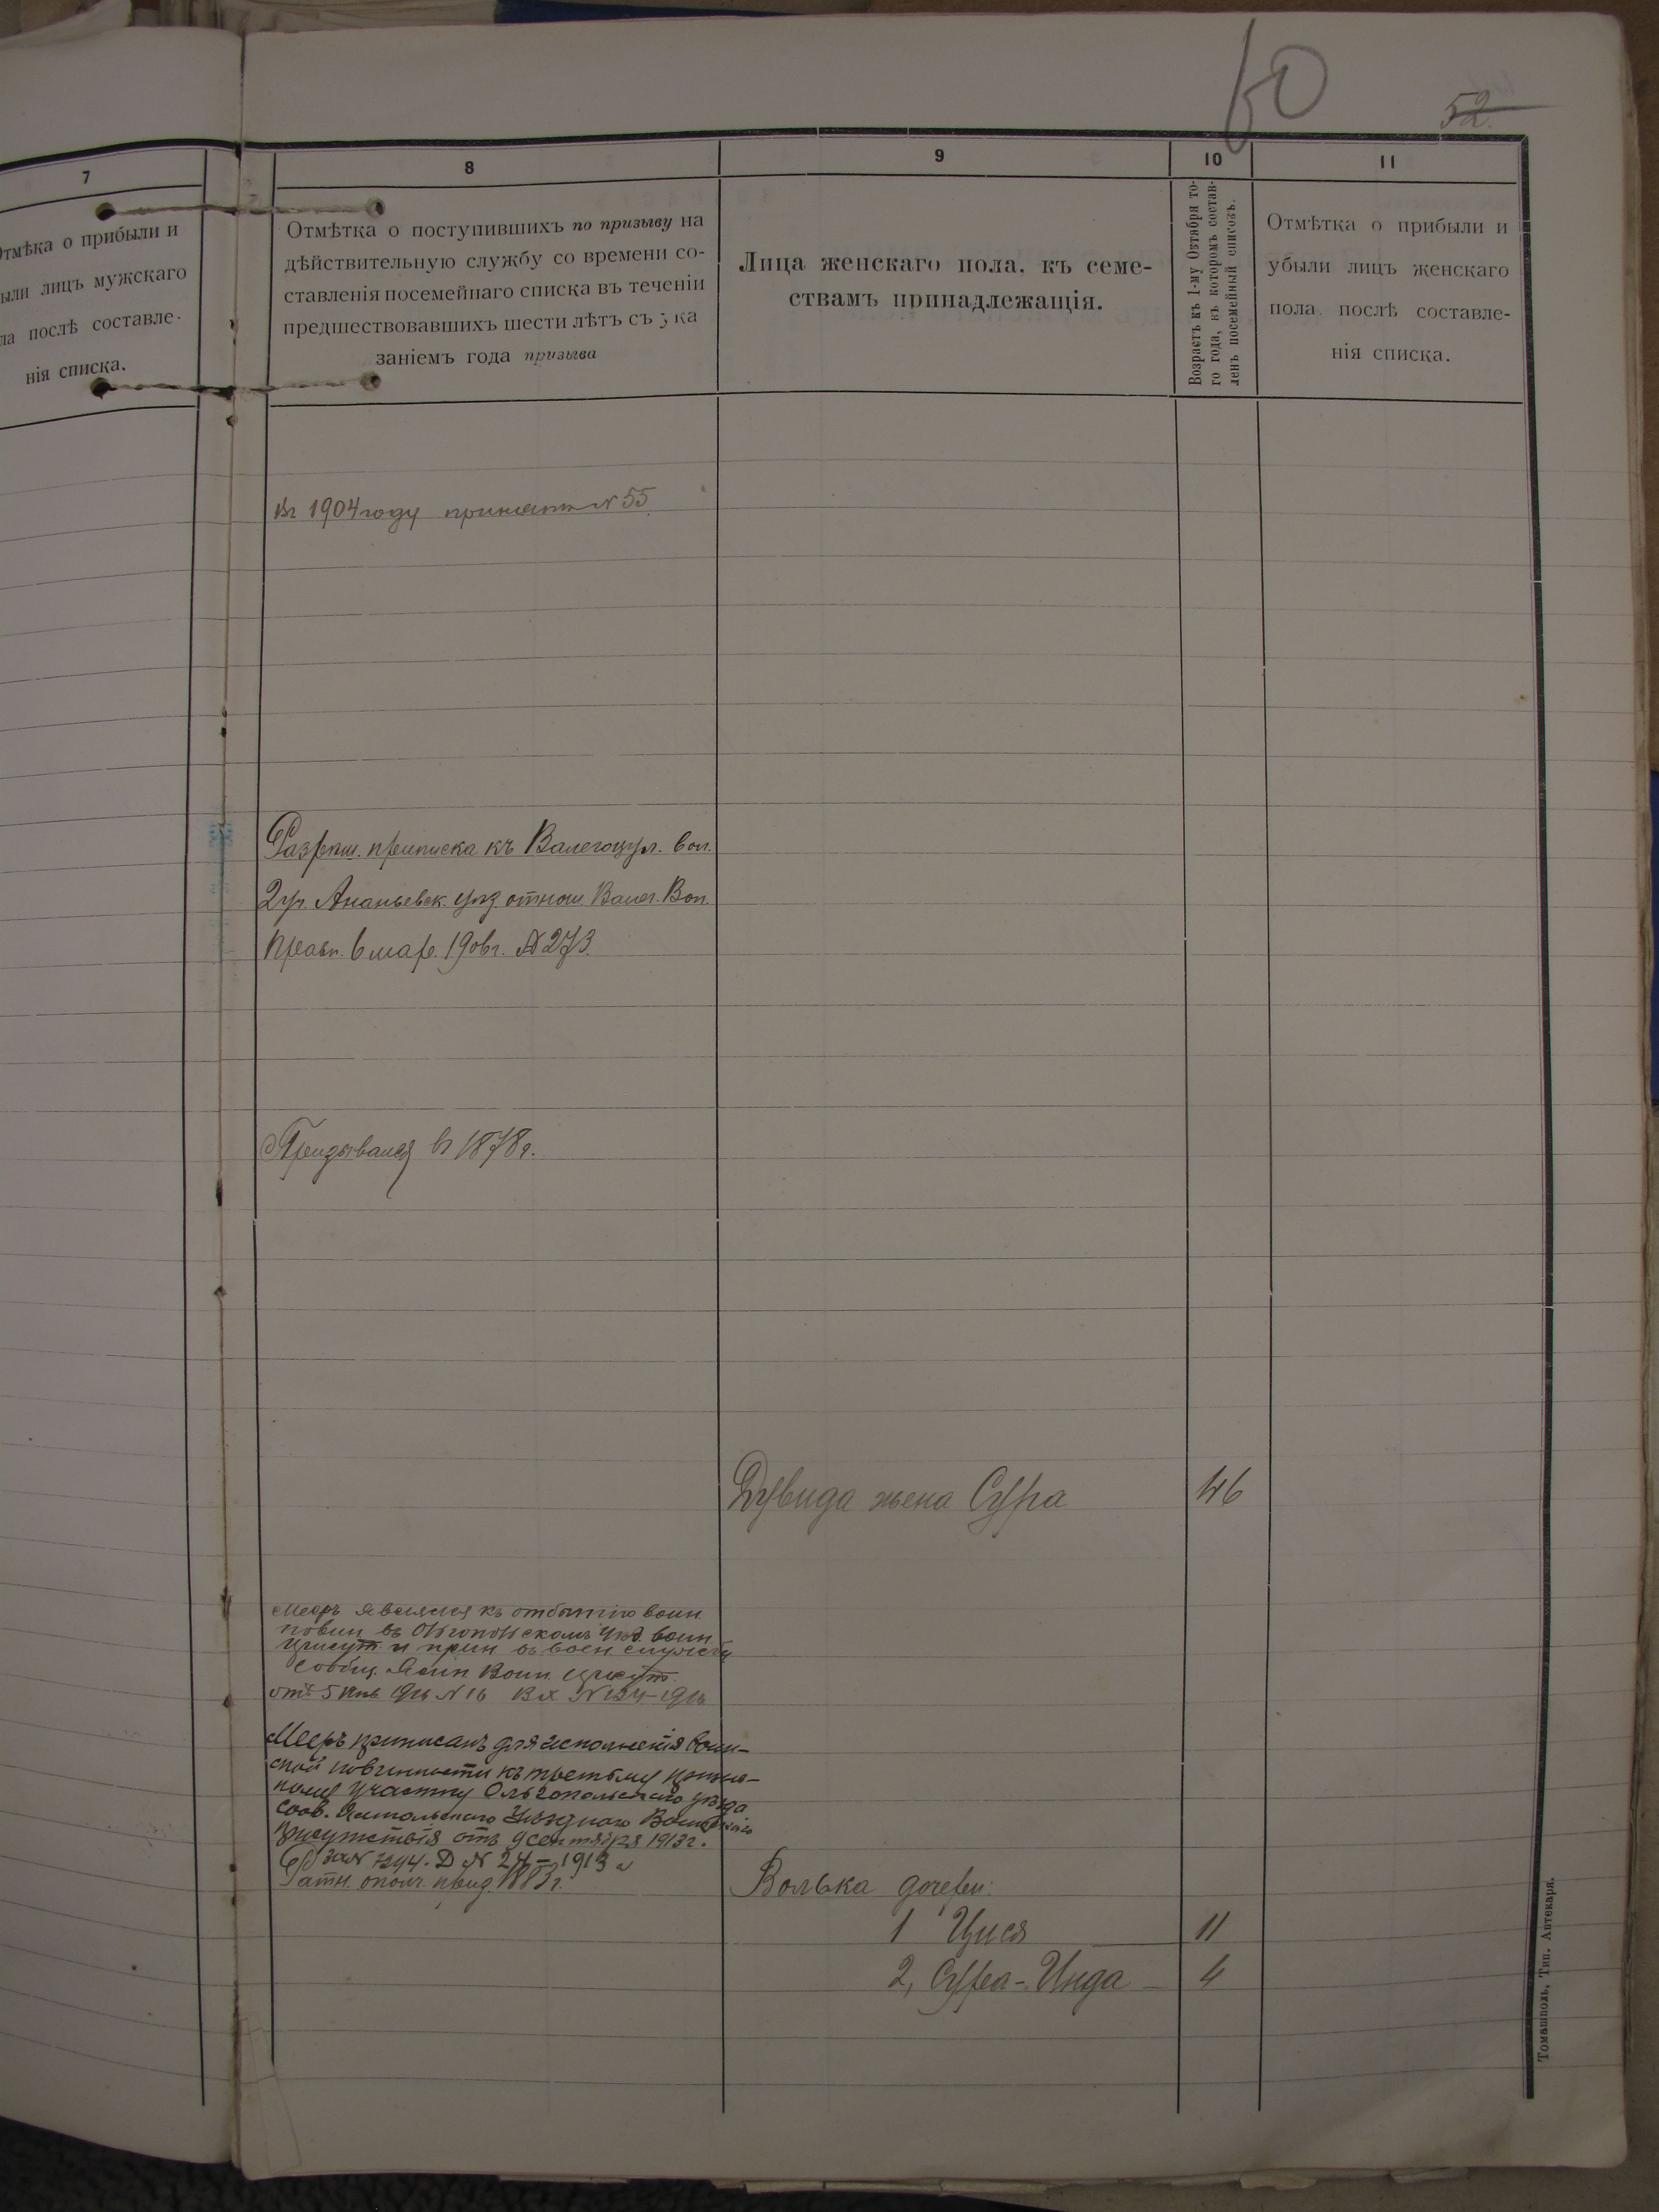 60
52
7
8
9
10
11
Отмѣка о прибыли и
были лицъ мужскаго
ла послѣ составле-
нія списка.
Отмѣтка о поступившихъ по призыву на
дѣйствительную службу со времени со-
ставленія посемейнаго списка въ теченіи
предшествовавшихъ шести лѣтъ съ ука
заніемъ года призыва
Лица женскаго пола, къ семе-
ствамъ принадлежащія.
Возрастъ къ 1-му Октября то-
го года, къ которомъ состав-
ленъ посемейный списокъ.
Отмѣтка о прибыли и
убыли лицъ женскаго
пола послѣ составле-
нія списка.
Въ 1904 году принятъ № 55
Разрѣш. приписка къ Валегоцул. вол.
2 уч. Ананьевск. уѣз. отнош. Валег. Вол.
Правл. 6 мар. 1906 г. № 273.
Призывался въ 1878 г.
Дувида жена Сура 46
Мееръ явился къ отбытію воин.
повин. въ уѣзд. воин.
присут. и прин въ воен. службу
сообщ. Ямп Воин. присут.
отъ 5 Янв. № 16 Вх
Мееръ приписанъ для исполненія воин-
ской повинности къ третьему призыв-
ному участку Ольгопольскаго уѣзда
сооб. Ямпольскаго Уѣзднаго Воинскаго
присутствія отъ 9 сентября 1913 г.
за № 7294. Д № 24 - 1913 г.
Ратн. ополч. 1883 г.
Волька дочери:
1 Цися 11
2, Сура-Инда 4
Томашполь, Тип. Аптекаря.